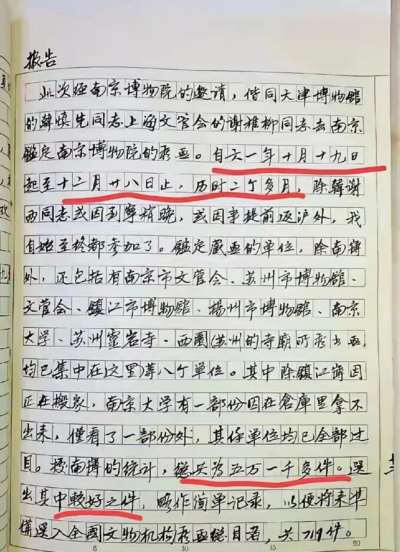 报告
此次经南京博物院的邀请，偕同天津博物館
的韓慎先同志上海文管会的谢稚柳同志去南京
鑑定南京博物院的書画。自六一年十月十九日
起至十二月廿八日止，历时二个多月，除韓謝
两同志或因到寧稍晚，或因事提前返沪外，我
自始至终都参加了。鑑定藏画的单位，除南博
外，还包括有南京市文管会、苏州市博物館、
文管会、鎮江市博物館、揚州市博物館、南京
大学、苏州靈岩寺、西園（苏州的寺廟所藏書画
均已集中在这里）等八个单位。其中除鎮江博因
正在搬家，南京大学有一部份因在倉庫里拿不
出来，僅看了一部份外，其餘单位均已全部过
目。按南博的统计，總共为五万一千多件。選
出其中較好之件，略作简单记录，以便将来準
備選入全國文物机构藏画總目者，共719件。
5
10
15
20